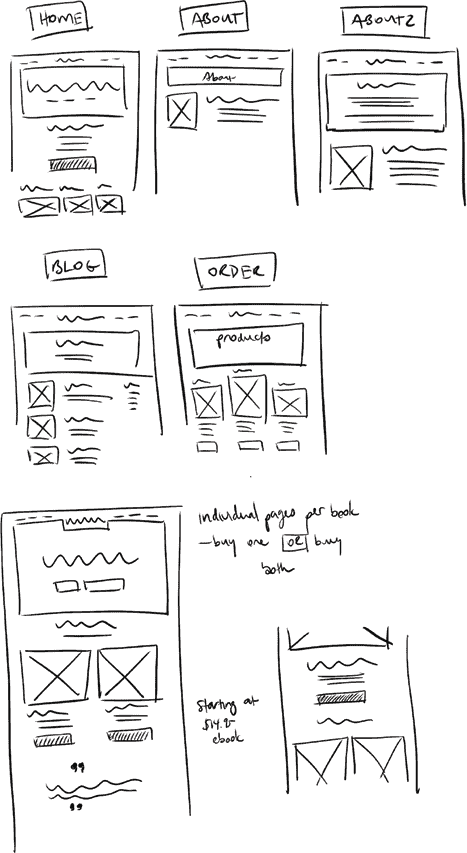 HOME
ABOUT
ABOUT2
About
BLOG
ORDER
products
individual pages per book
— buy one or buy
both
starting at
ebook